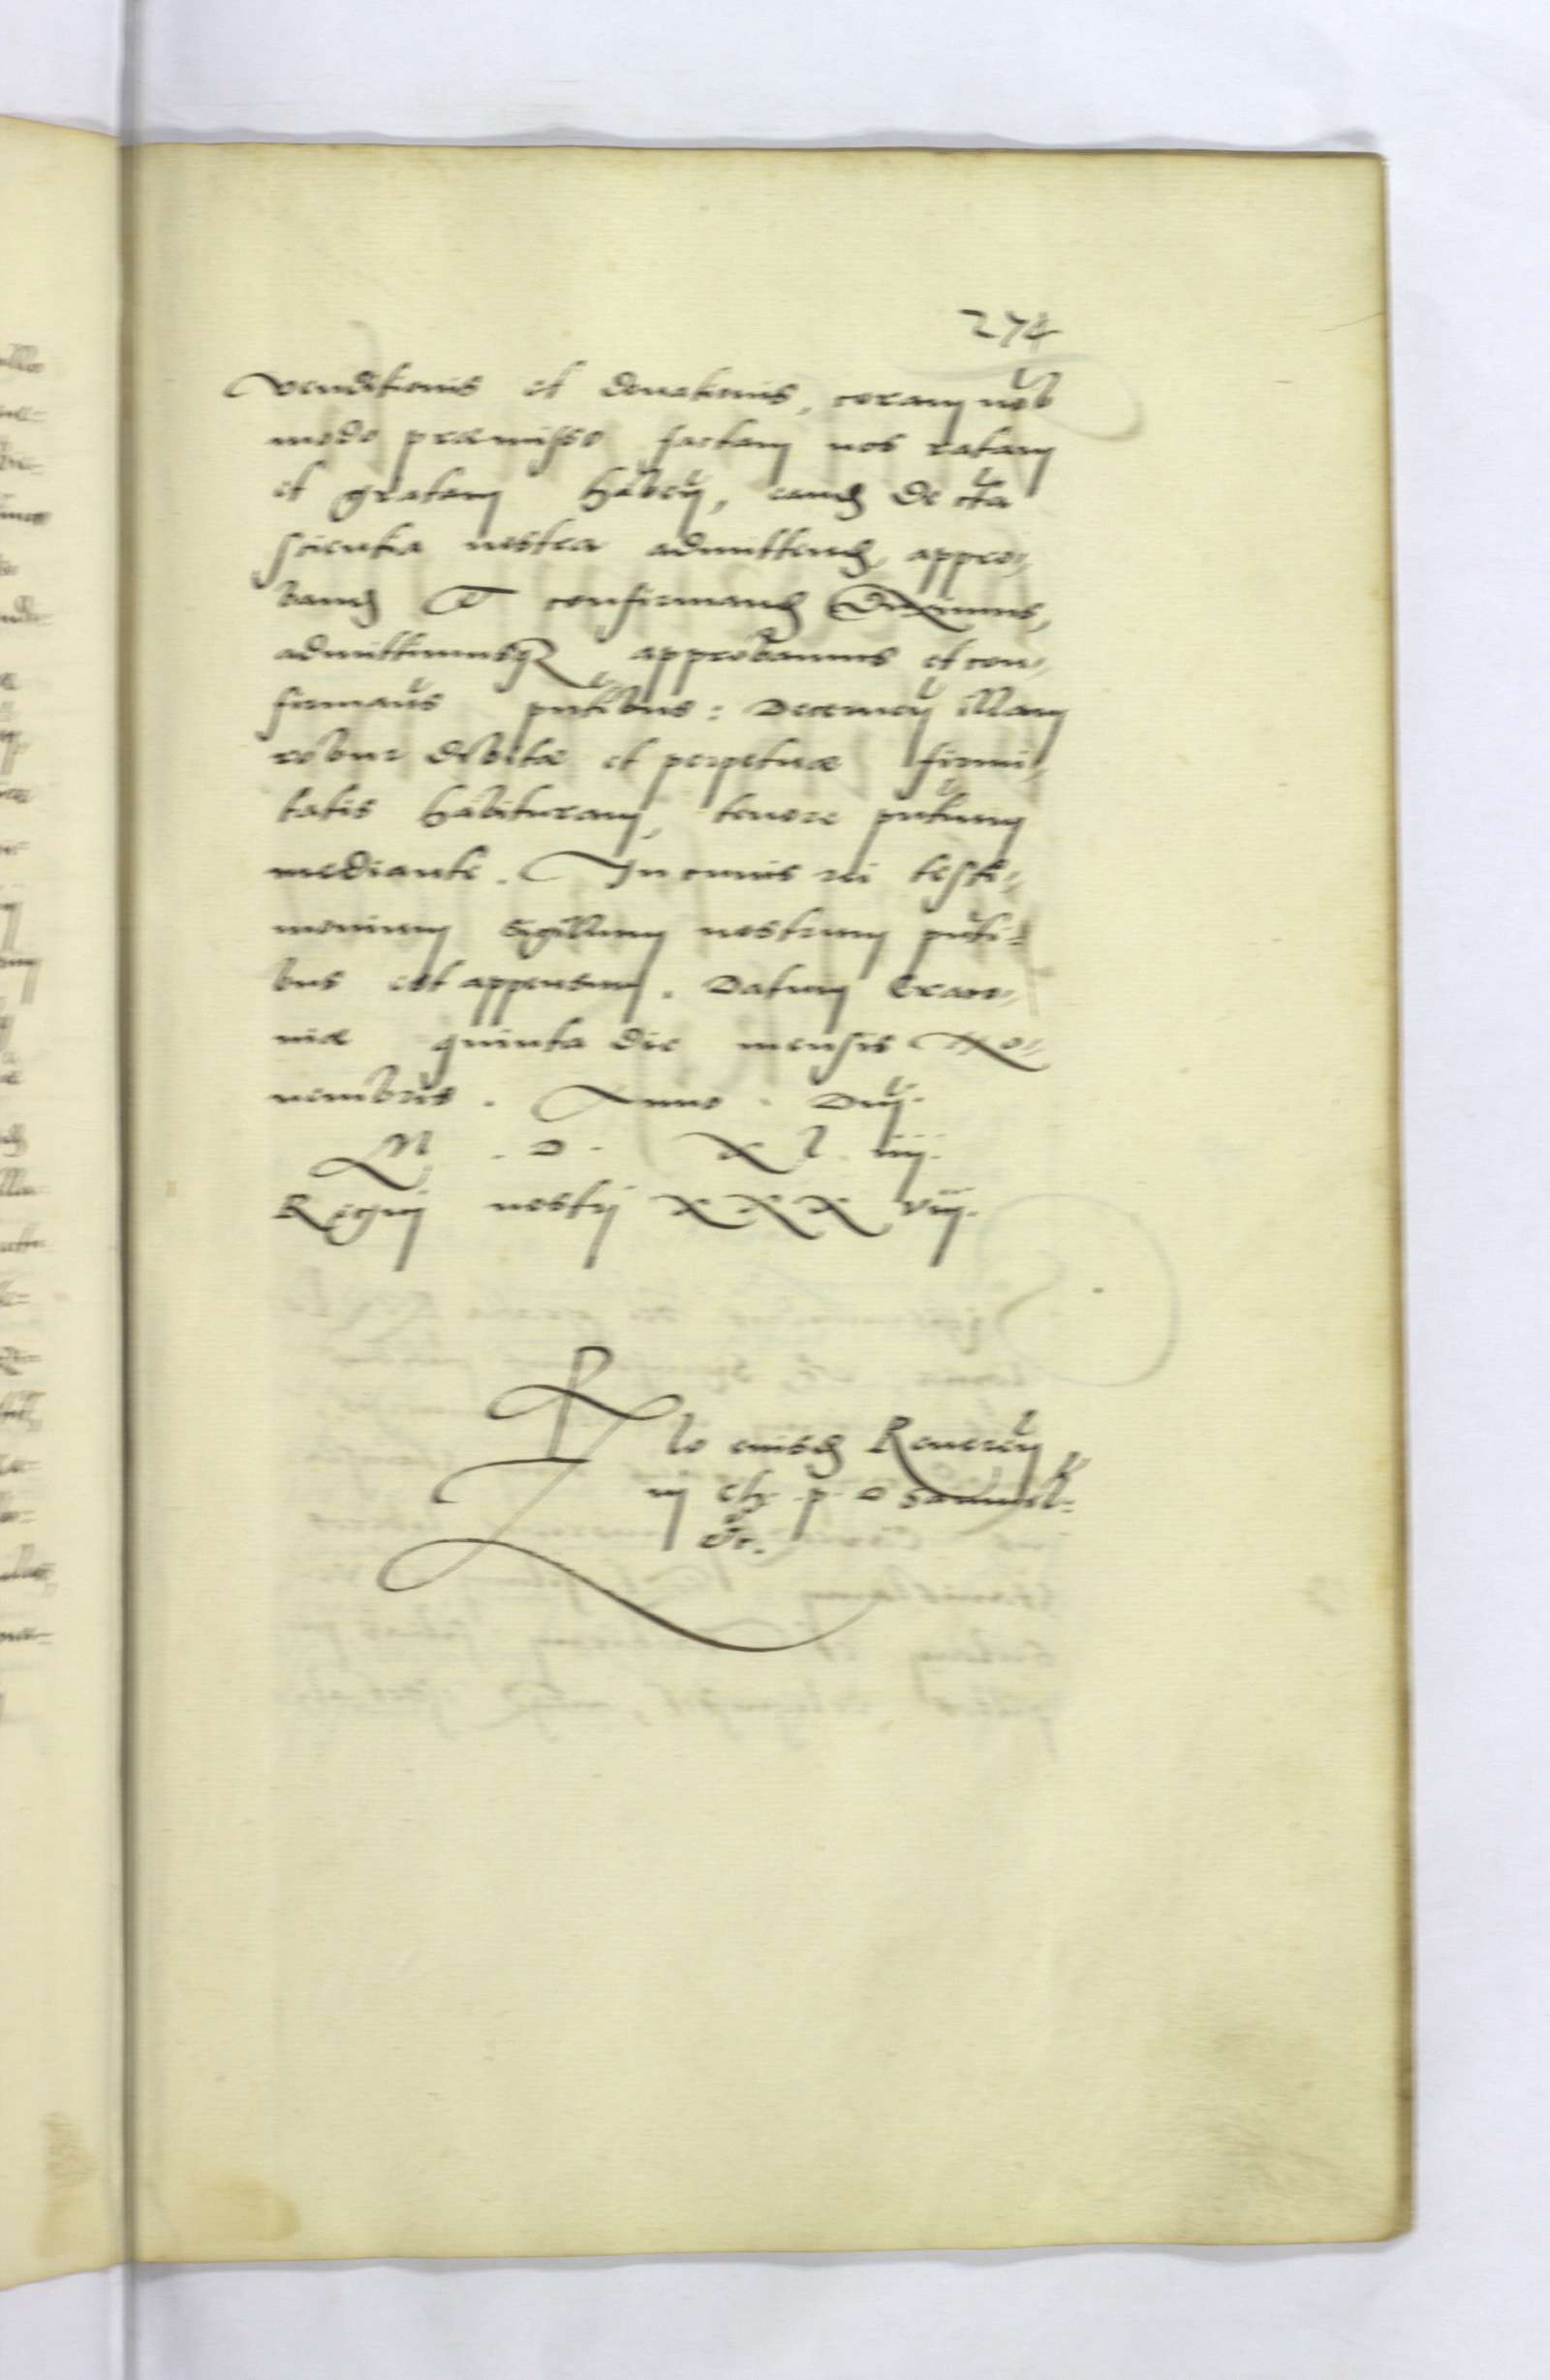 274
venditionis et donationis, coram nob
modo præmisso factam nos ratam
et gratam habeñ, eamq de cta
scientia nostra admittenđ, appro„
banđ et confirmanđ Duximus,
admittimusq approbamus et con„
firmams pntibus: Decerneñ illam
robur debitæ et perpetuæ firmi„
tatis habituram, tenore pntium
mediante. In cuius rei testi„
monium Sigillum nostrum pnti=
bus est appensum. Datum Craco„
uiæ quinta die mensis No„
uembris. Anno. Dnj.
M. D. X L iiij.
Regnj nostrj X X X viij.
Rlo eiusđ Reueren„
ij Chr. p. D Samuel=
etc.